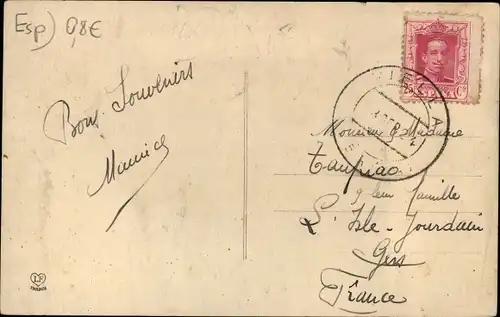 Esp) 0,8€
Bons Souvenirs
Maurice
VIELLA
Monsieur & Madame
& leur famille
L'Isle-Jourdain
Gers
France